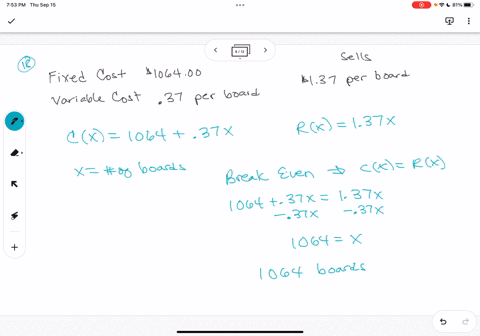 7:53 PM Thu Sep 15
81%
18
Fixed Cost $1064.00
Variable Cost .37 per board
Sells
$1.37 per board
C(x) = 1064 + .37x
R(x) = 1.37x
x = # of boards
Break Even ⇒ C(x) = R(x)
1064 + .37x = 1.37x
-.37x -.37x
1064 = x
1064 boards